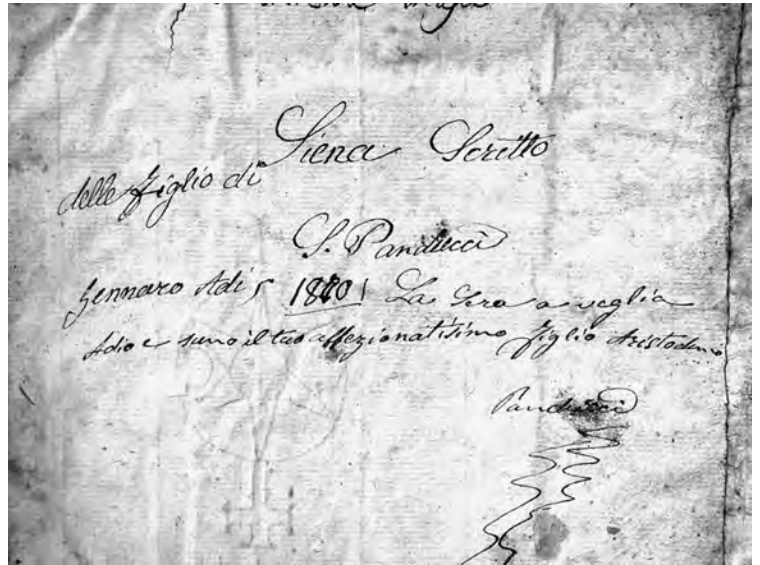 Siena Scritto
delle figlio di
S. Panducci
Gennaro Adi 5 1870 La Sera a veglia
Adio e suno il tuo affezionatisimo figlio Aristodemo
Panducci